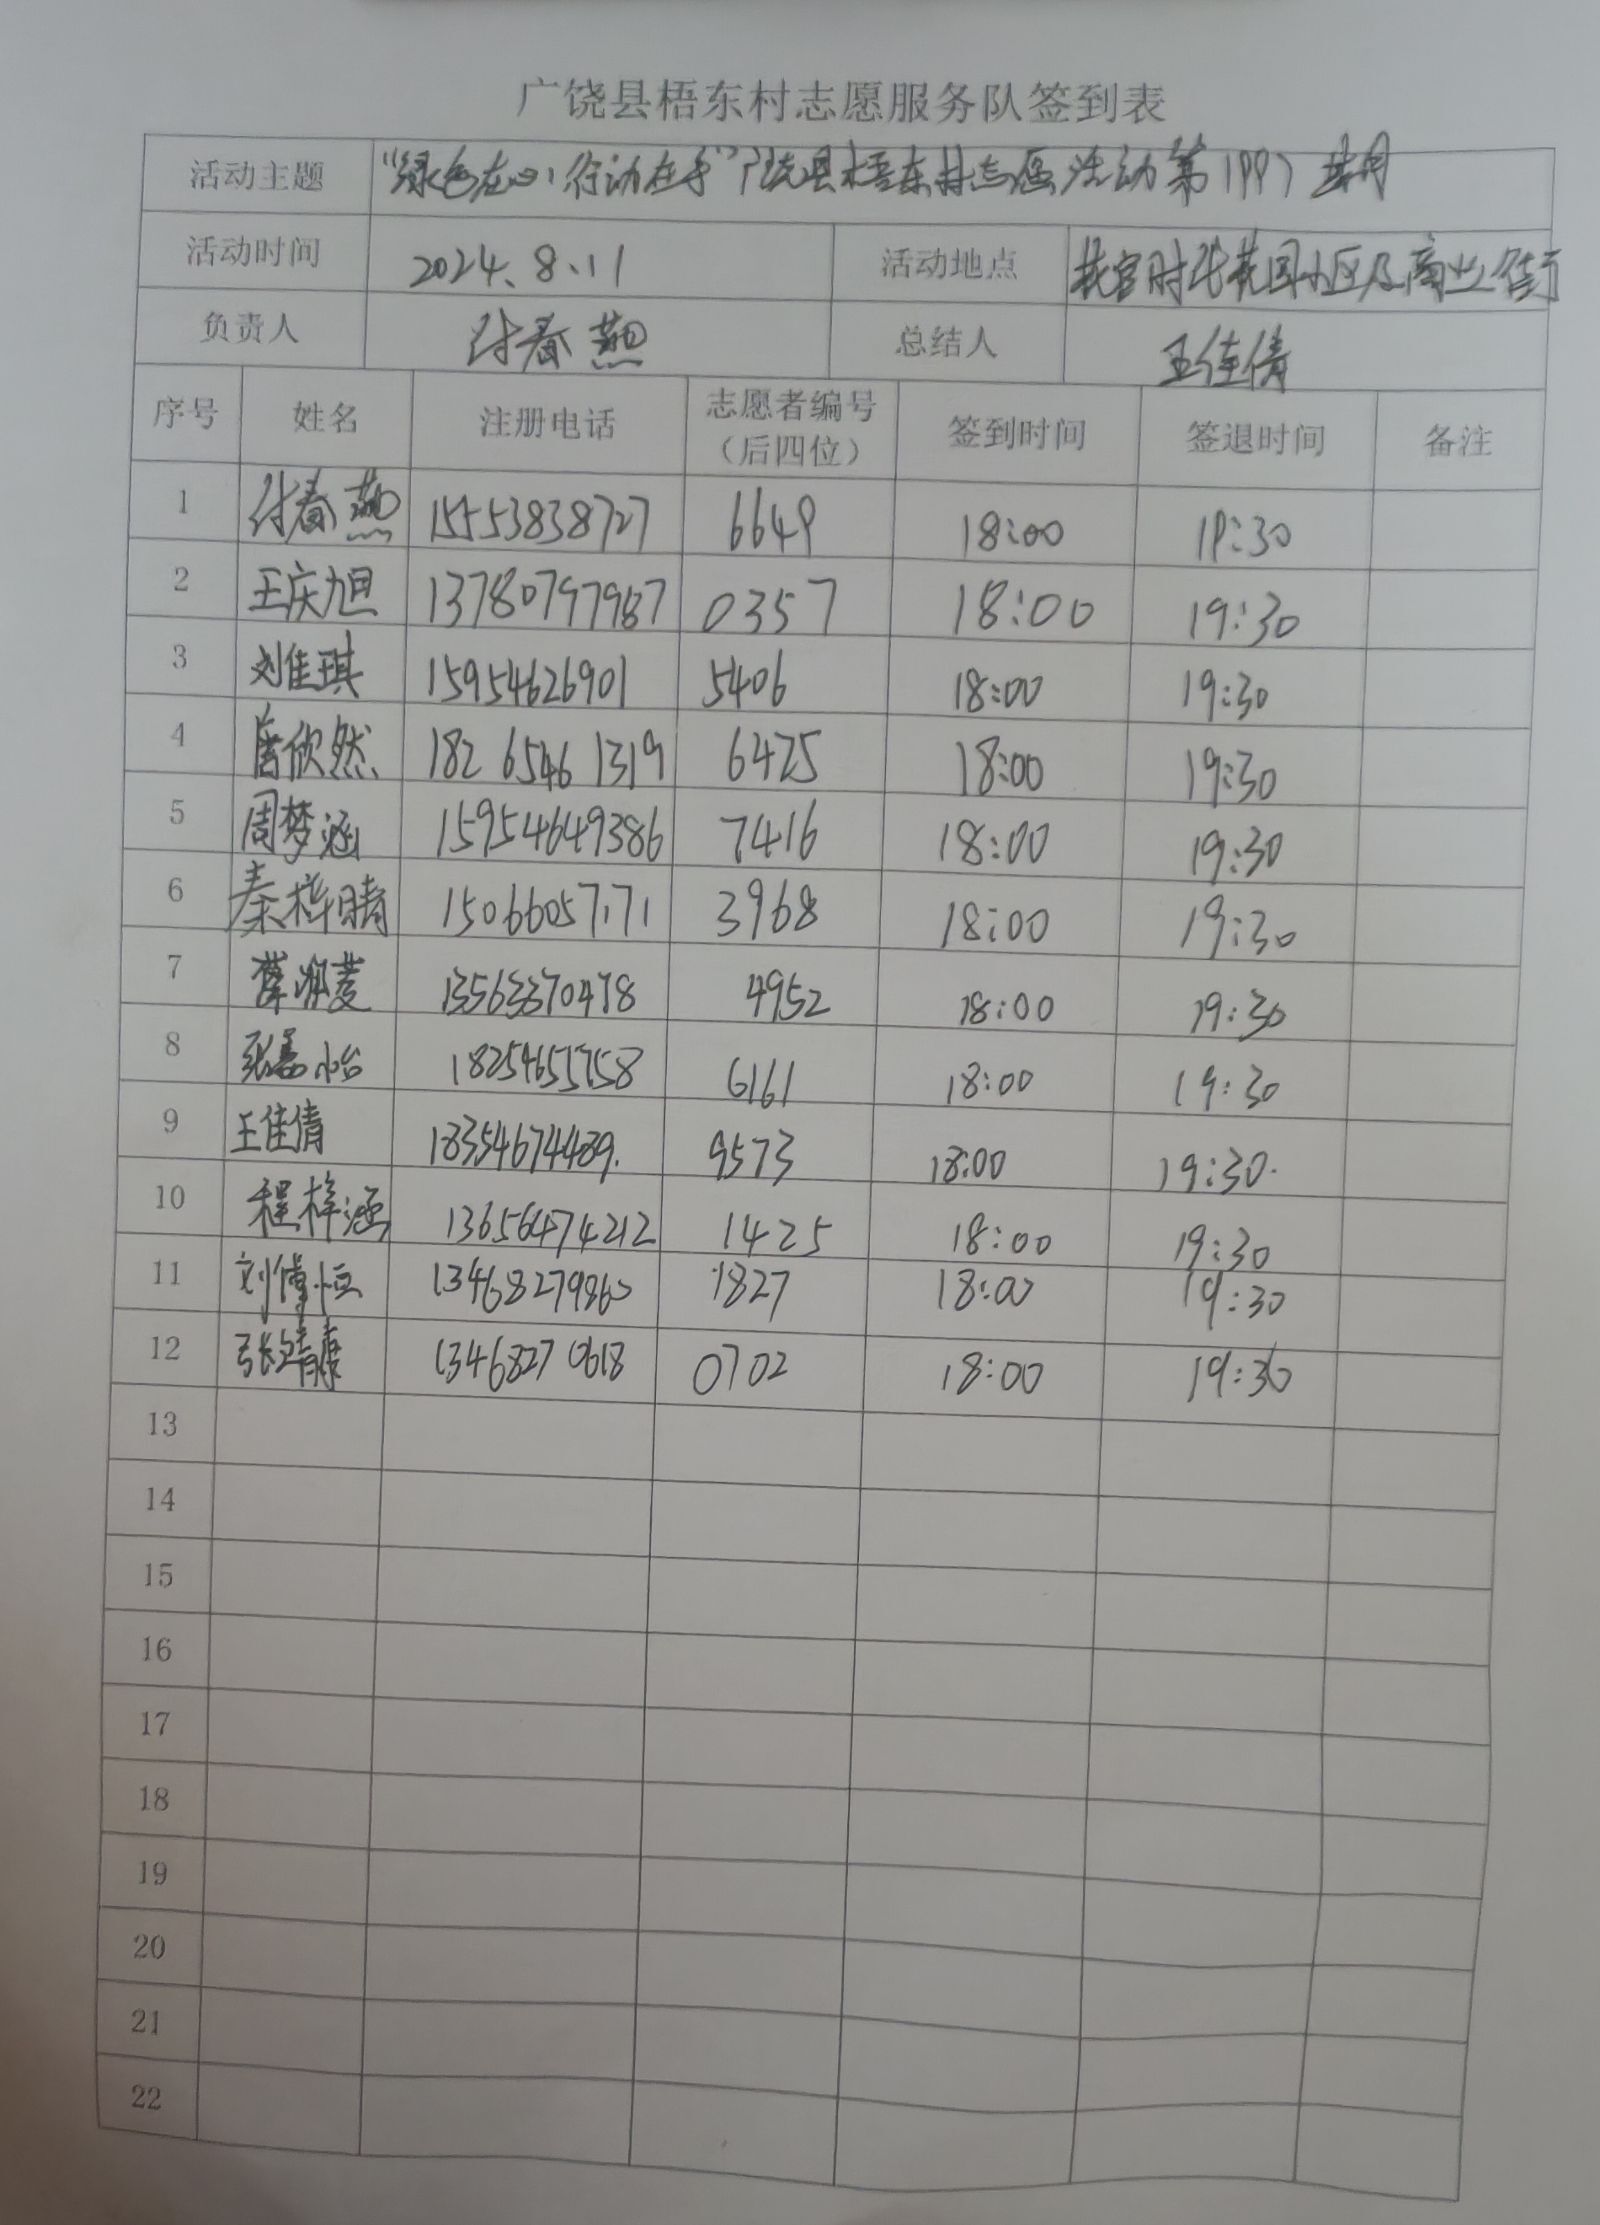 广饶县梧东村志愿服务队签到表
活动主题 "绿色在心,行动在手"广饶县梧东村志愿活动第1997期
活动时间 2024.8.11 活动地点 花园小区及商业街
负责人 付春燕 总结人 王佳倩
序号 姓名 注册电话 志愿者编号（后四位） 签到时间 签退时间 备注
1 付春燕 15553838727 6649 18:00 19:30
2 王庆旭 13780797987 0357 18:00 19:30
3 刘佳琪 15954626901 5406 18:00 19:30
4 欣然 182 6546 1319 6425 18:00 19:30
5 周梦涵 15954649386 7416 18:00 19:30
6 秦梓晴 15066057171 3968 18:00 19:30
7 4952 18:00 19:30
8 18254655758 6161 18:00 19:30
9 王佳倩 18354674489. 9573 18:00 19:30.
10 程梓涵 13656474212 1425 18:00 19:30
11 刘博恒 13468279860 1827 18:00 19:30
12 张靖康 13468270618 0702 18:00 19:30
13
14
15
16
17
18
19
20
21
22